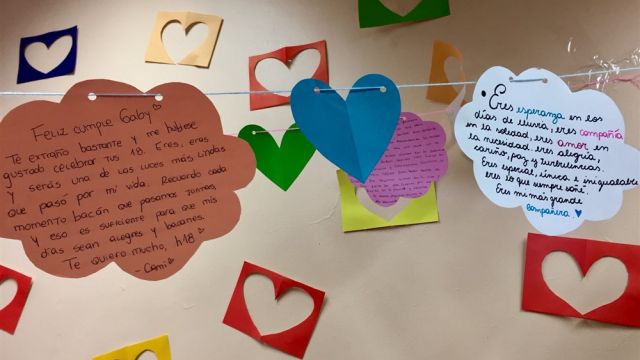 Feliz cumple Gaby
Te extraño bastante y me hubiese
gustado celebrar tus 18. Eres, eras
y serás una de las luces más lindas
que pasó por mi vida. Recuerdo cada
momento bacán que pasamos juntas,
y eso es suficiente para que mis
días sean alegres y bacanes.
Te quiero mucho, h18
- Cami
Eres esperanza en los
días de lluvia, eres compañía
en la soledad, eres amor en
la necesidad, eres alegría,
cariño, paz y turbulencias.
Eres especial, única e inigualable
eres lo que siempre soñé.
Eres mi más grande
compañera.